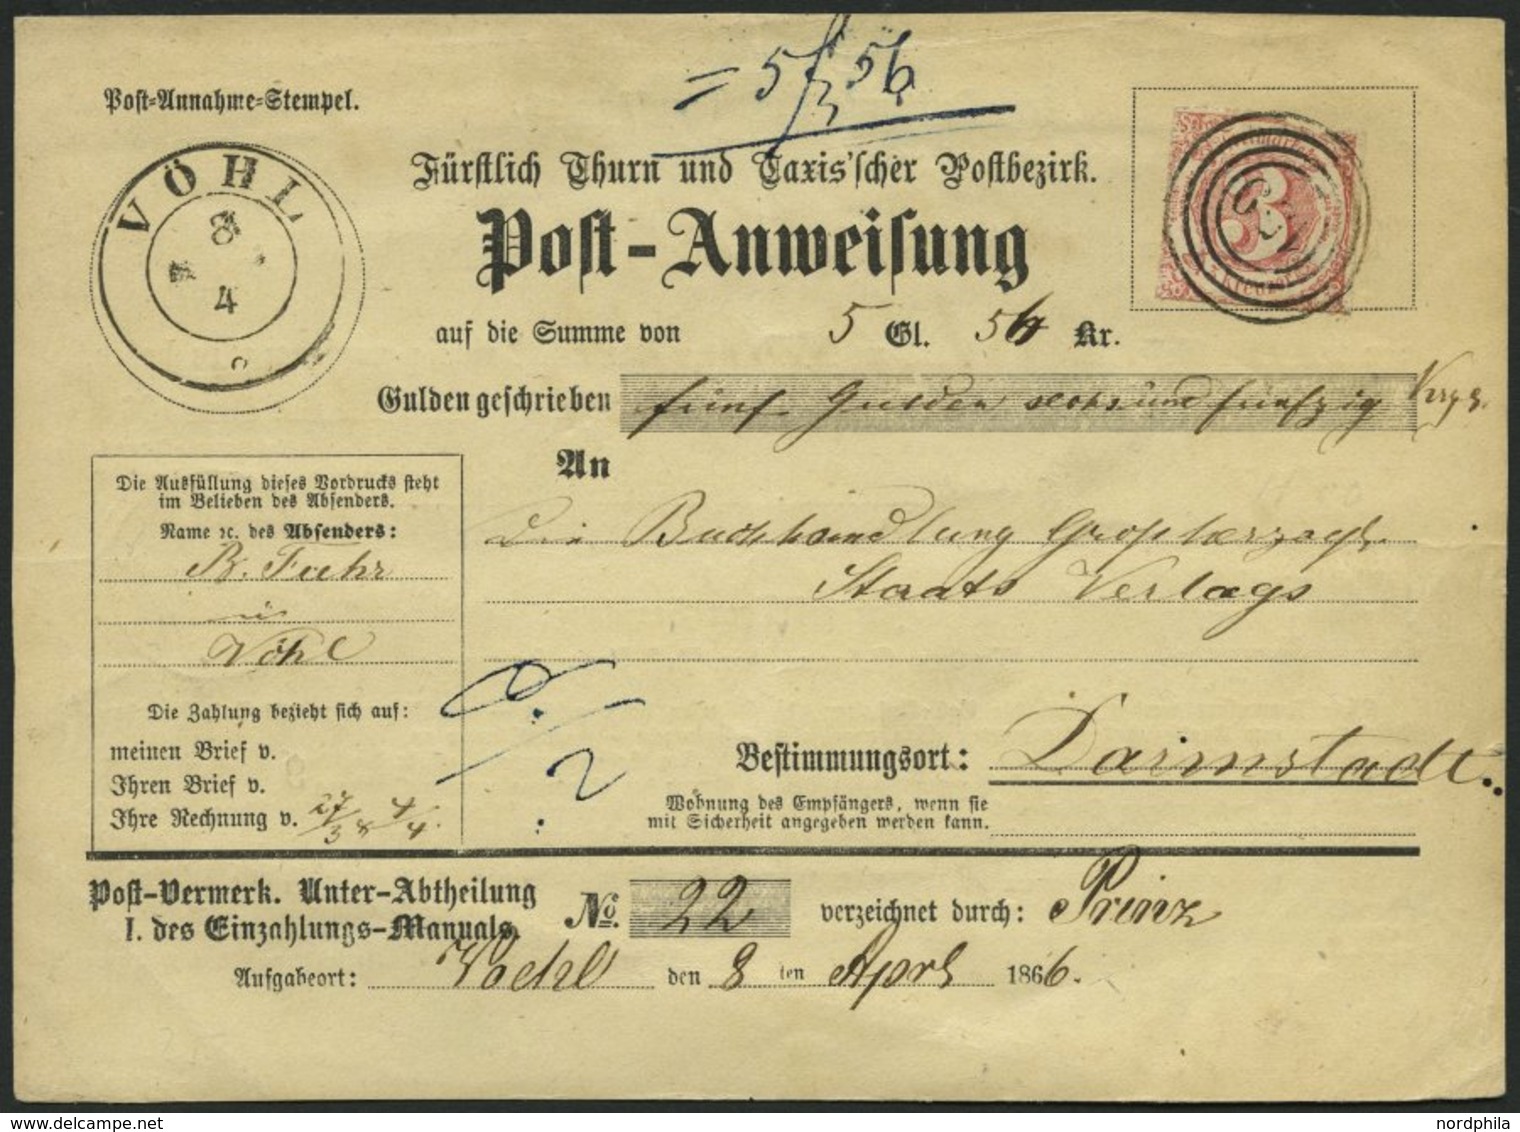 = 5 f 56
Post-Annahme-Stempel.
VÖHL
8
4
Fürstlich Thurn und Taxis'scher Postbezirk.
Post-Anweisung
3
auf die Summe von 5 Gl. 56 Kr.
Gulden geschrieben fünf Gulden sechsundfünfzig
An
Die Buchhandlung Großherzogl.
Staats Verlags
Die Ausfüllung dieses Vordrucks steht
im Belieben des Absenders.
Name ꝛc. des Absenders:
B. Fuhr
in
Vöhl
Die Zahlung bezieht sich auf:
meinen Brief v.
Ihren Brief v.
Ihre Rechnung v. 27/3 & 4/4.
Bestimmungsort: Darmstadt.
Wohnung des Empfängers, wenn sie
mit Sicherheit angegeben werden kann.
Post-Vermerk. Unter-Abtheilung
I. des Einzahlungs-Manuals.
No. 22 verzeichnet durch: Prinz
Aufgabeort: Voehl den 8 ten April 1866.
nordphila